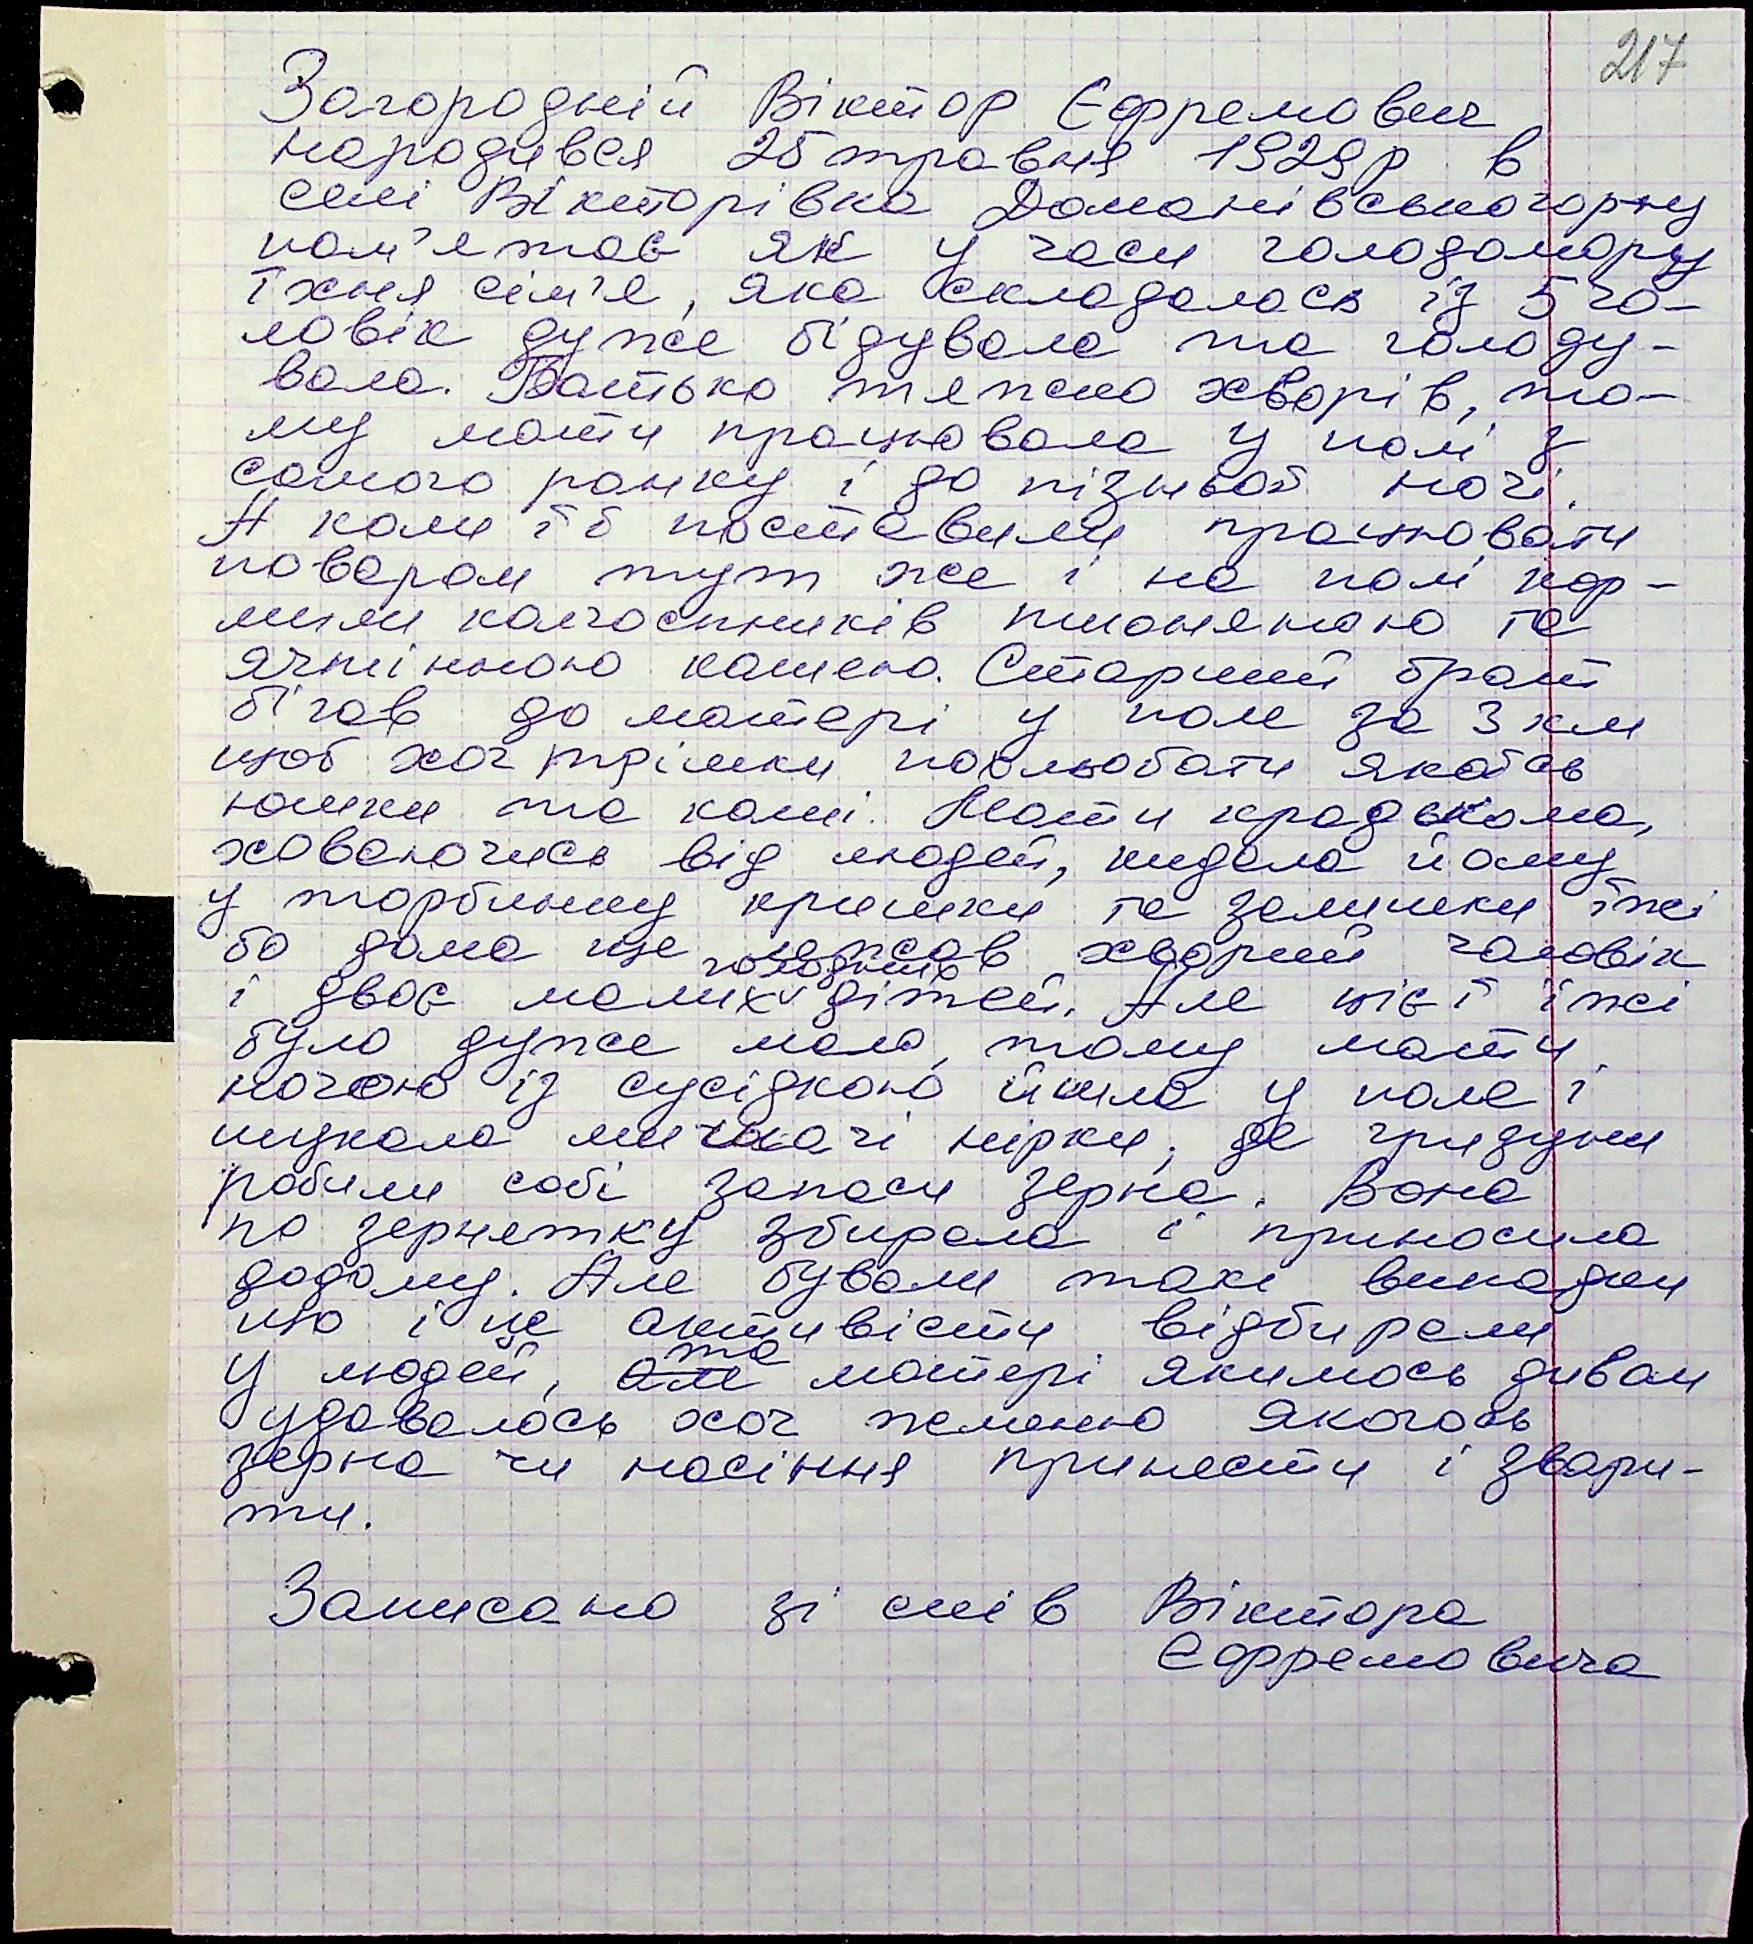 217
Загородній Віктор Єфремович
народився 25 травня 1929р в
селі Вікторівка Доманівського р-ну
пам'ятав як у часи голодомору
їхня сім'я, яка складалась із 5 чо-
ловік дуже бідувала та голоду-
вала. Батько тяжко хворів, то-
му мати працювала у полі з
самого ранку і до пізньої ночі.
А коли її поставили працювати
поваром тут же і на полі кор-
мили колгоспників пшоняною та
ячмінною кашею. Старший брат
бігав до матері у поле за 3 км
щоб хоч трішки похлюбати якоїсь
юшки та каші. Мати крадькома,
ховаючись від людей, кидала йому
у торбинку кришки та залишки їжі
бо дома ще лежав хворий чоловік
і двоє малих голодних дітей. Але цієї їжі
було дуже мало, тому мати
ночою із сусідкою йшла у поле і
шукала мишачі нірки, де гризуни
робили собі запаси зерна. Вона
по зернятку збирала і приносила
додому. Але бували такі випадки
що і це активісти відбирали
у людей, але та матері якимось дивом
удавалось хоч жменю якогось
зерна чи насіння принести і звари-
ти.
Записано зі слів Віктора
Єфремовича